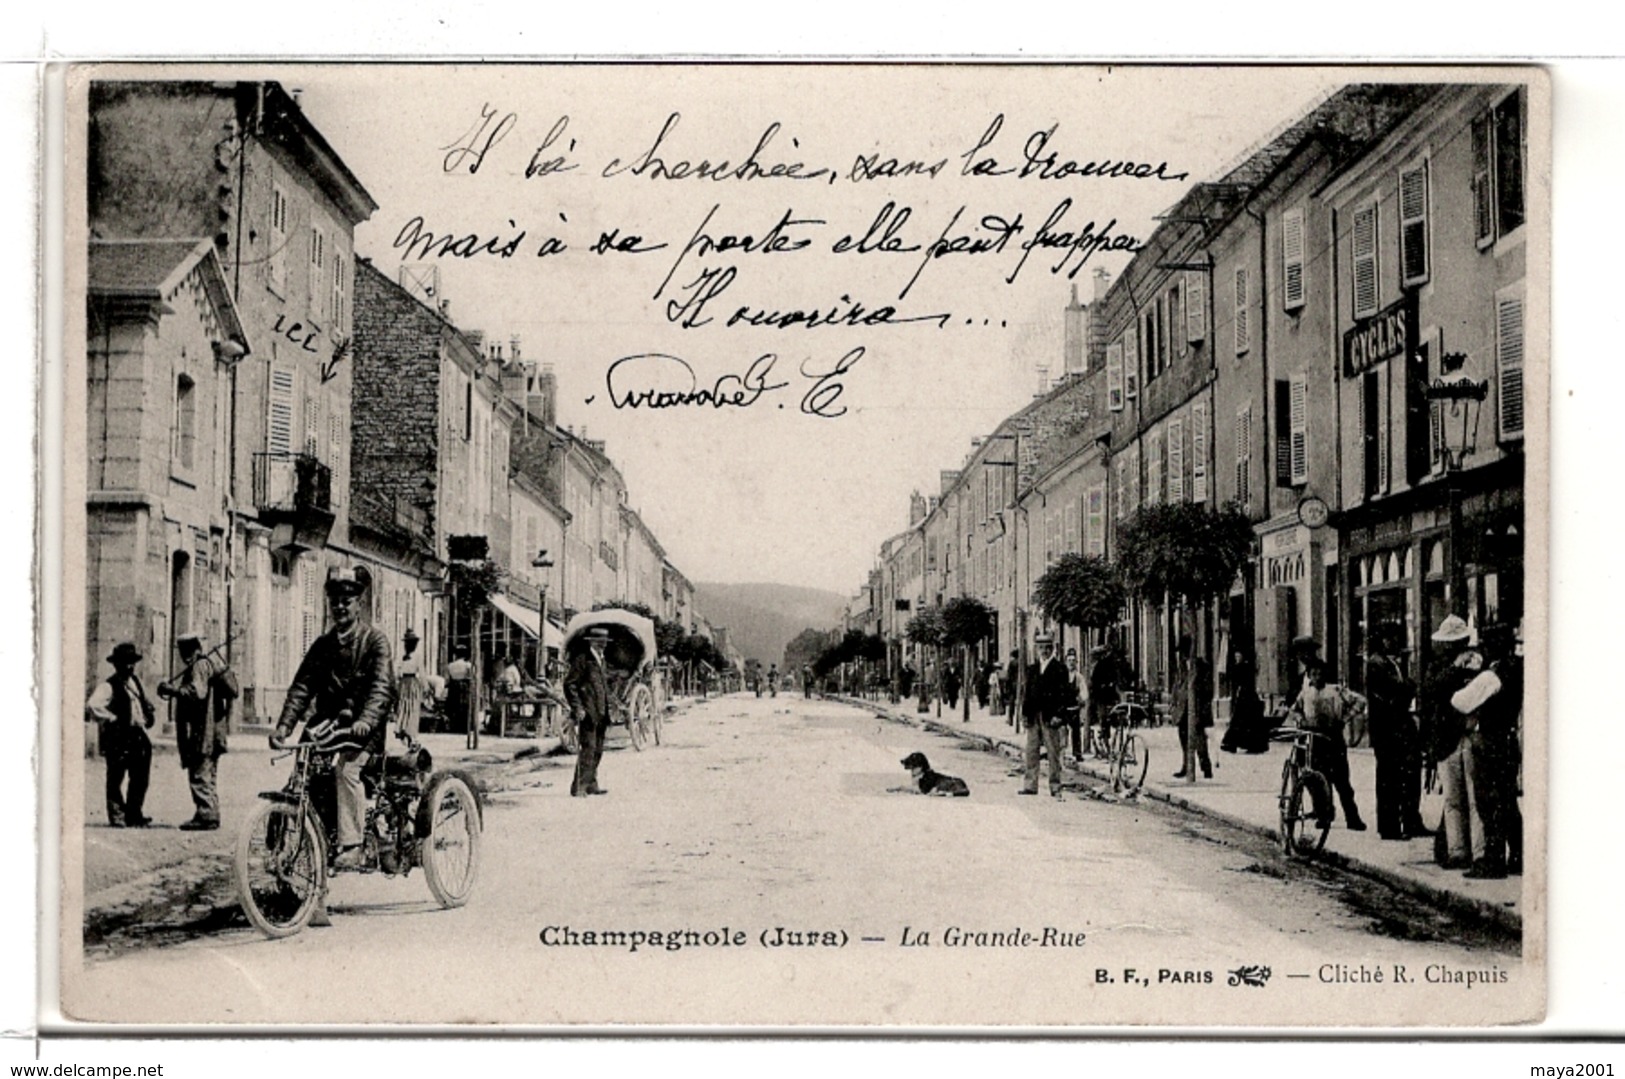 Il l'a cherchée, sans la trouver
mais à sa porte elle peut frapper
Il ouvrira ...
ICI
CYCLES
Champagnole (Jura) — La Grande-Rue
B. F., PARIS — Cliché R. Chapuis
www.delcampe.net
maya2001